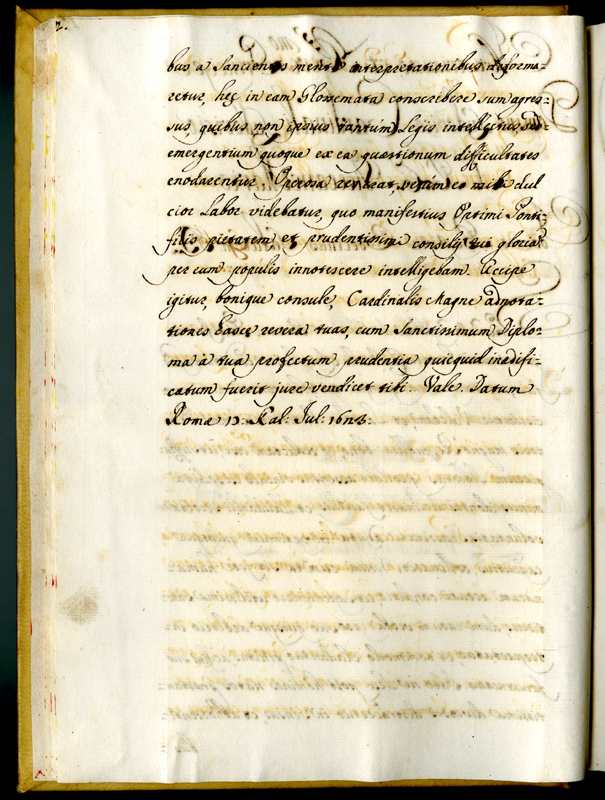 2.
bus a Sancientis mente interpretationibus deforma-
retur, hęc in eam Glossemata conscribere sum agres-
sus, quibus non ipsius tantùm Legis intellectus, sed
emergentium quoque ex ea quæstionum difficultates
enodarentur. Operosa res erat, verùm eo mihi dul
cior Labor videbatur, quo manifestius Optimi Ponti-
ficis pietatem et prudentissimi consilij tui gloria
per eum populis innotescere intelligebam. Accipe
igitur, bonique consule, Cardinalis Magne adnota-
tiones hasce revera tuas, cum Sanctissimum Diplo-
ma à tua profectum prudentia quicquid inædifi-
catum fuerit jure vendicet tibi. Vale. Datum
Romæ Kal: Jul: